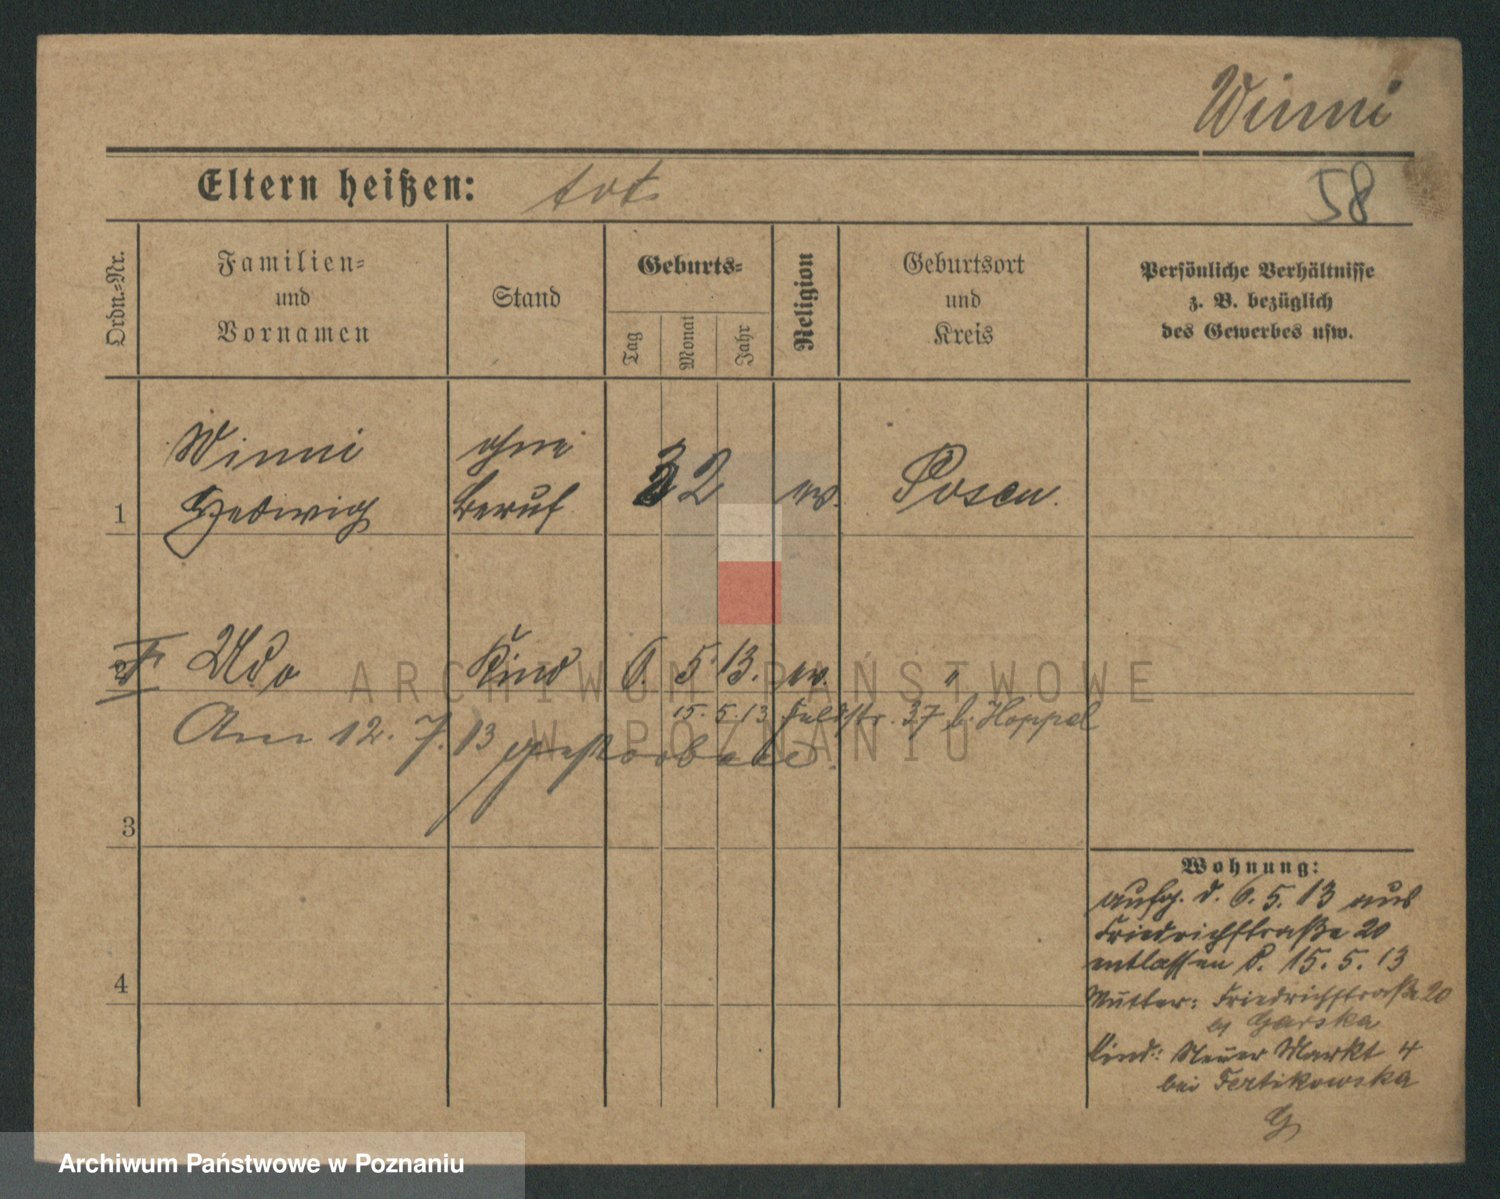 Winni
Eltern heißen: tot.
58
Ordn.-Nr.
Familien-
und
Vornamen
Stand
Geburts-
Tag
Monat
Jahr
Religion
Geburtsort
und
Kreis
Persönliche Verhältnisse
z. B. bezüglich
des Gewerbes usw.
Winni ohne
1 Hedwig Beruf 2 ev. Posen.
Udo Kind 6. 5. 13. ev. "
15. 5. 13 Feldstr. 37 b. Hoppel
Am 12. 7. 13 gestorben.
3
4
Wohnung:
aufg. d. 6. 5. 13 aus
Friedrichstraße 20
entlassen d. 15. 5. 13
Mutter: Friedrichstraße 20
Garska
Kind: Neuer Markt 4
bei Fertikowska
G
ARCHIWUM PAŃSTWOWE
W POZNANIU
Archiwum Państwowe w Poznaniu